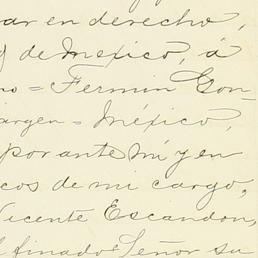 ar en derecho,
y de Mexico, á
no = Fermin Gon-
argen = México,
por ante mí y en
cos de mi cargo,
Vicente Escandon,
l finado Señor su